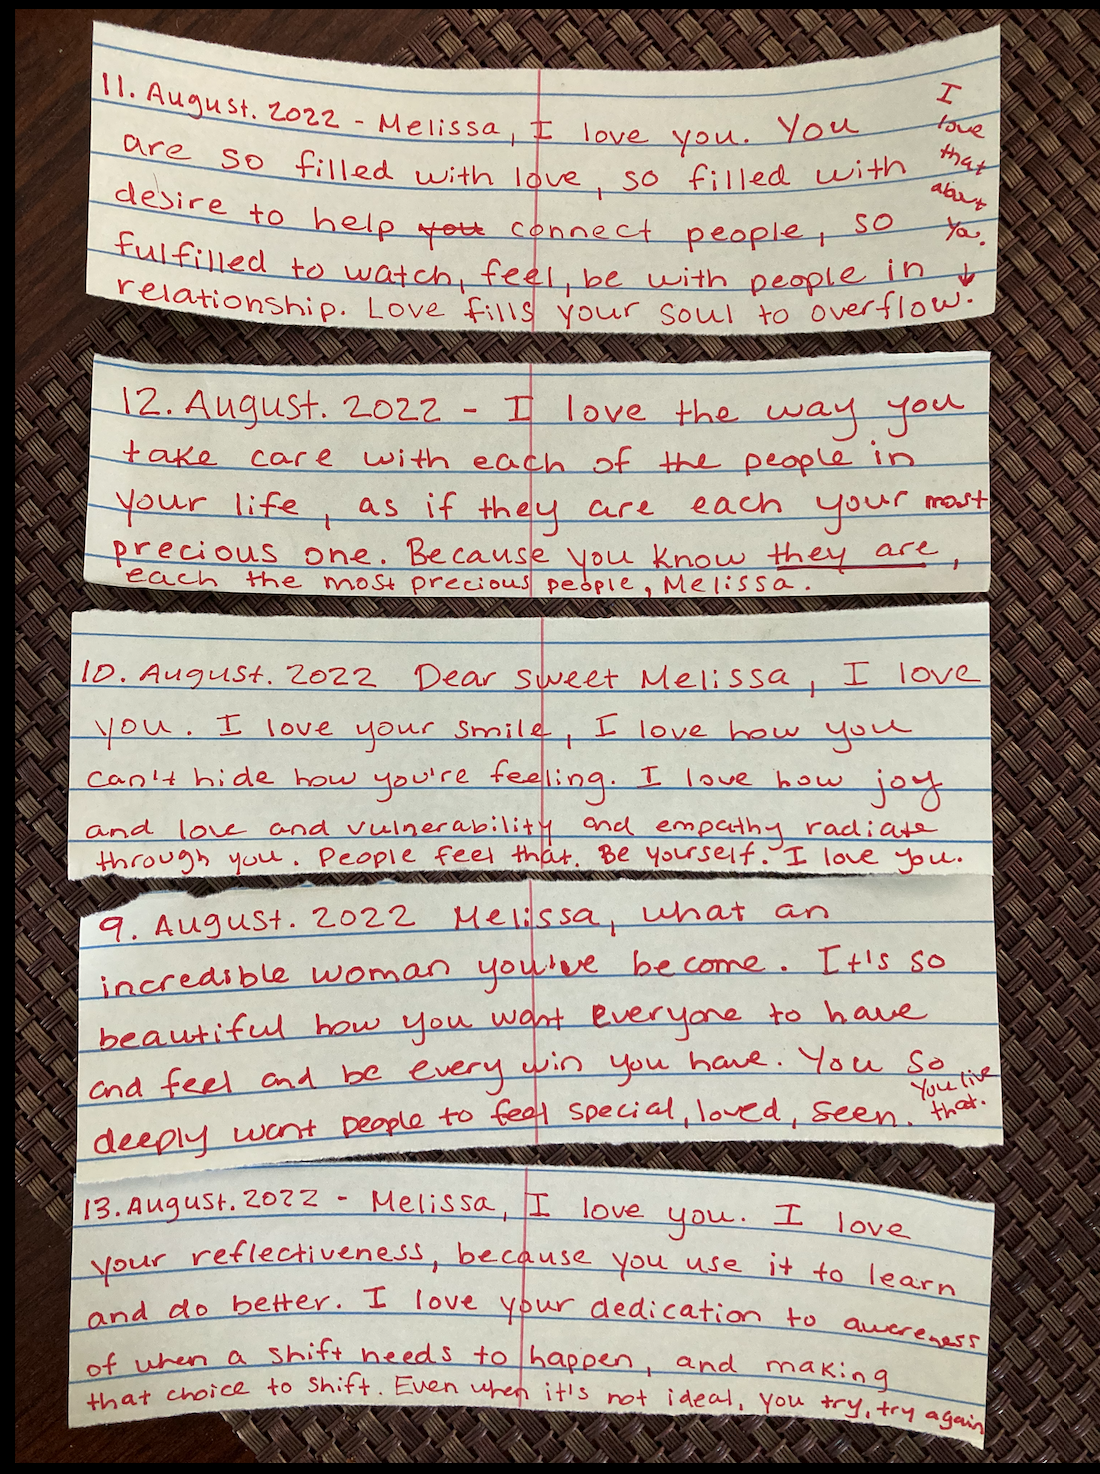 11. August. 2022 - Melissa, I love you. You
are so filled with love, so filled with
desire to help you connect people, so
fulfilled to watch, feel, be with people in
relationship. Love fills your soul to overflow.
I
love
that
about
ya.
12. August. 2022 - I love the way you
take care with each of the people in
your life, as if they are each your most
precious one. Because you know they are,
each the most precious people, Melissa.
10. August. 2022 Dear sweet Melissa, I love
you. I love your smile, I love how you
can't hide how you're feeling. I love how joy
and love and vulnerability and empathy radiate
through you. People feel that. Be yourself. I love you.
9. August. 2022 Melissa, what an
incredible woman you've become. It's so
beautiful how you want everyone to have
and feel and be every win you have. You so
deeply want people to feel special, loved, seen.
You live
that.
13. August. 2022 - Melissa, I love you. I love
your reflectiveness, because you use it to learn
and do better. I love your dedication to awareness
of when a shift needs to happen, and making
that choice to shift. Even when it's not ideal, you try, try again